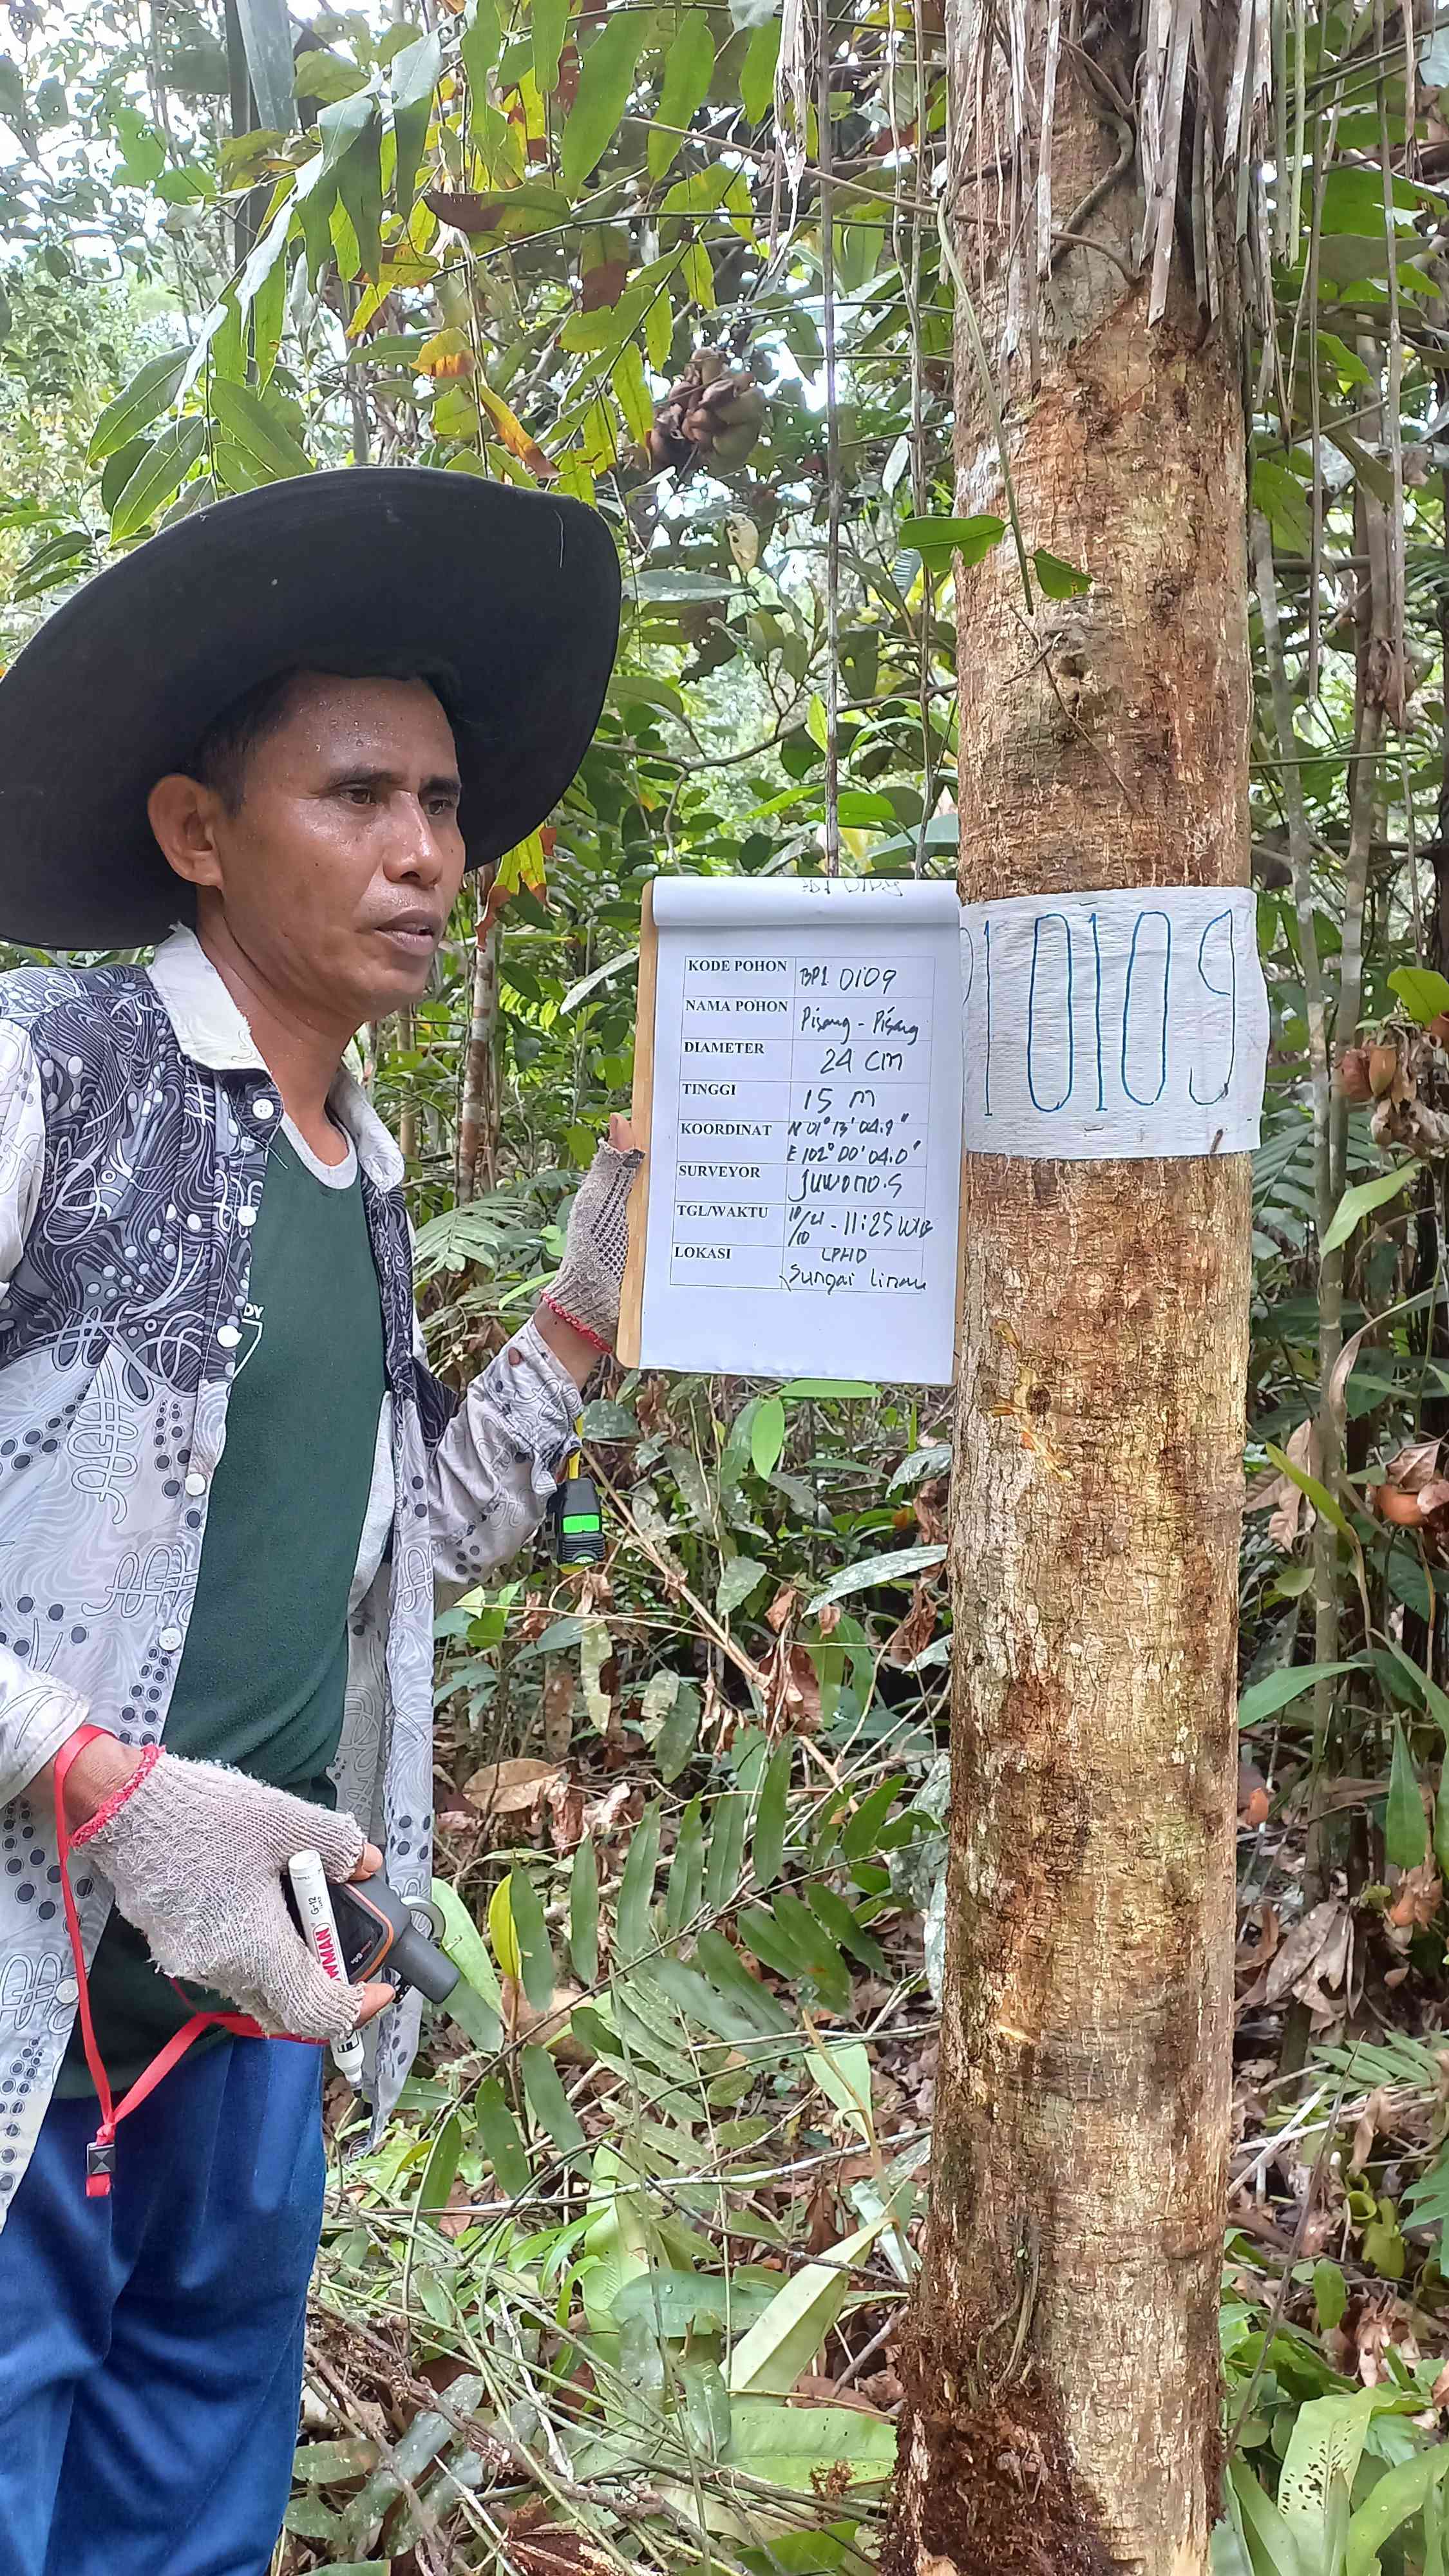 KODE POHON BP1 0109
NAMA POHON Pisang - Pisang
DIAMETER 24 cm
TINGGI 15 m
KOORDINAT N 01° 13' 04.9"
E 102° 00' 04.0"
SURVEYOR JUWONO.S
TGL/WAKTU 10/10/21 - 11:25 WIB
LOKASI LPHD
Sungai Linau
10109
DY
G-12
WMAN